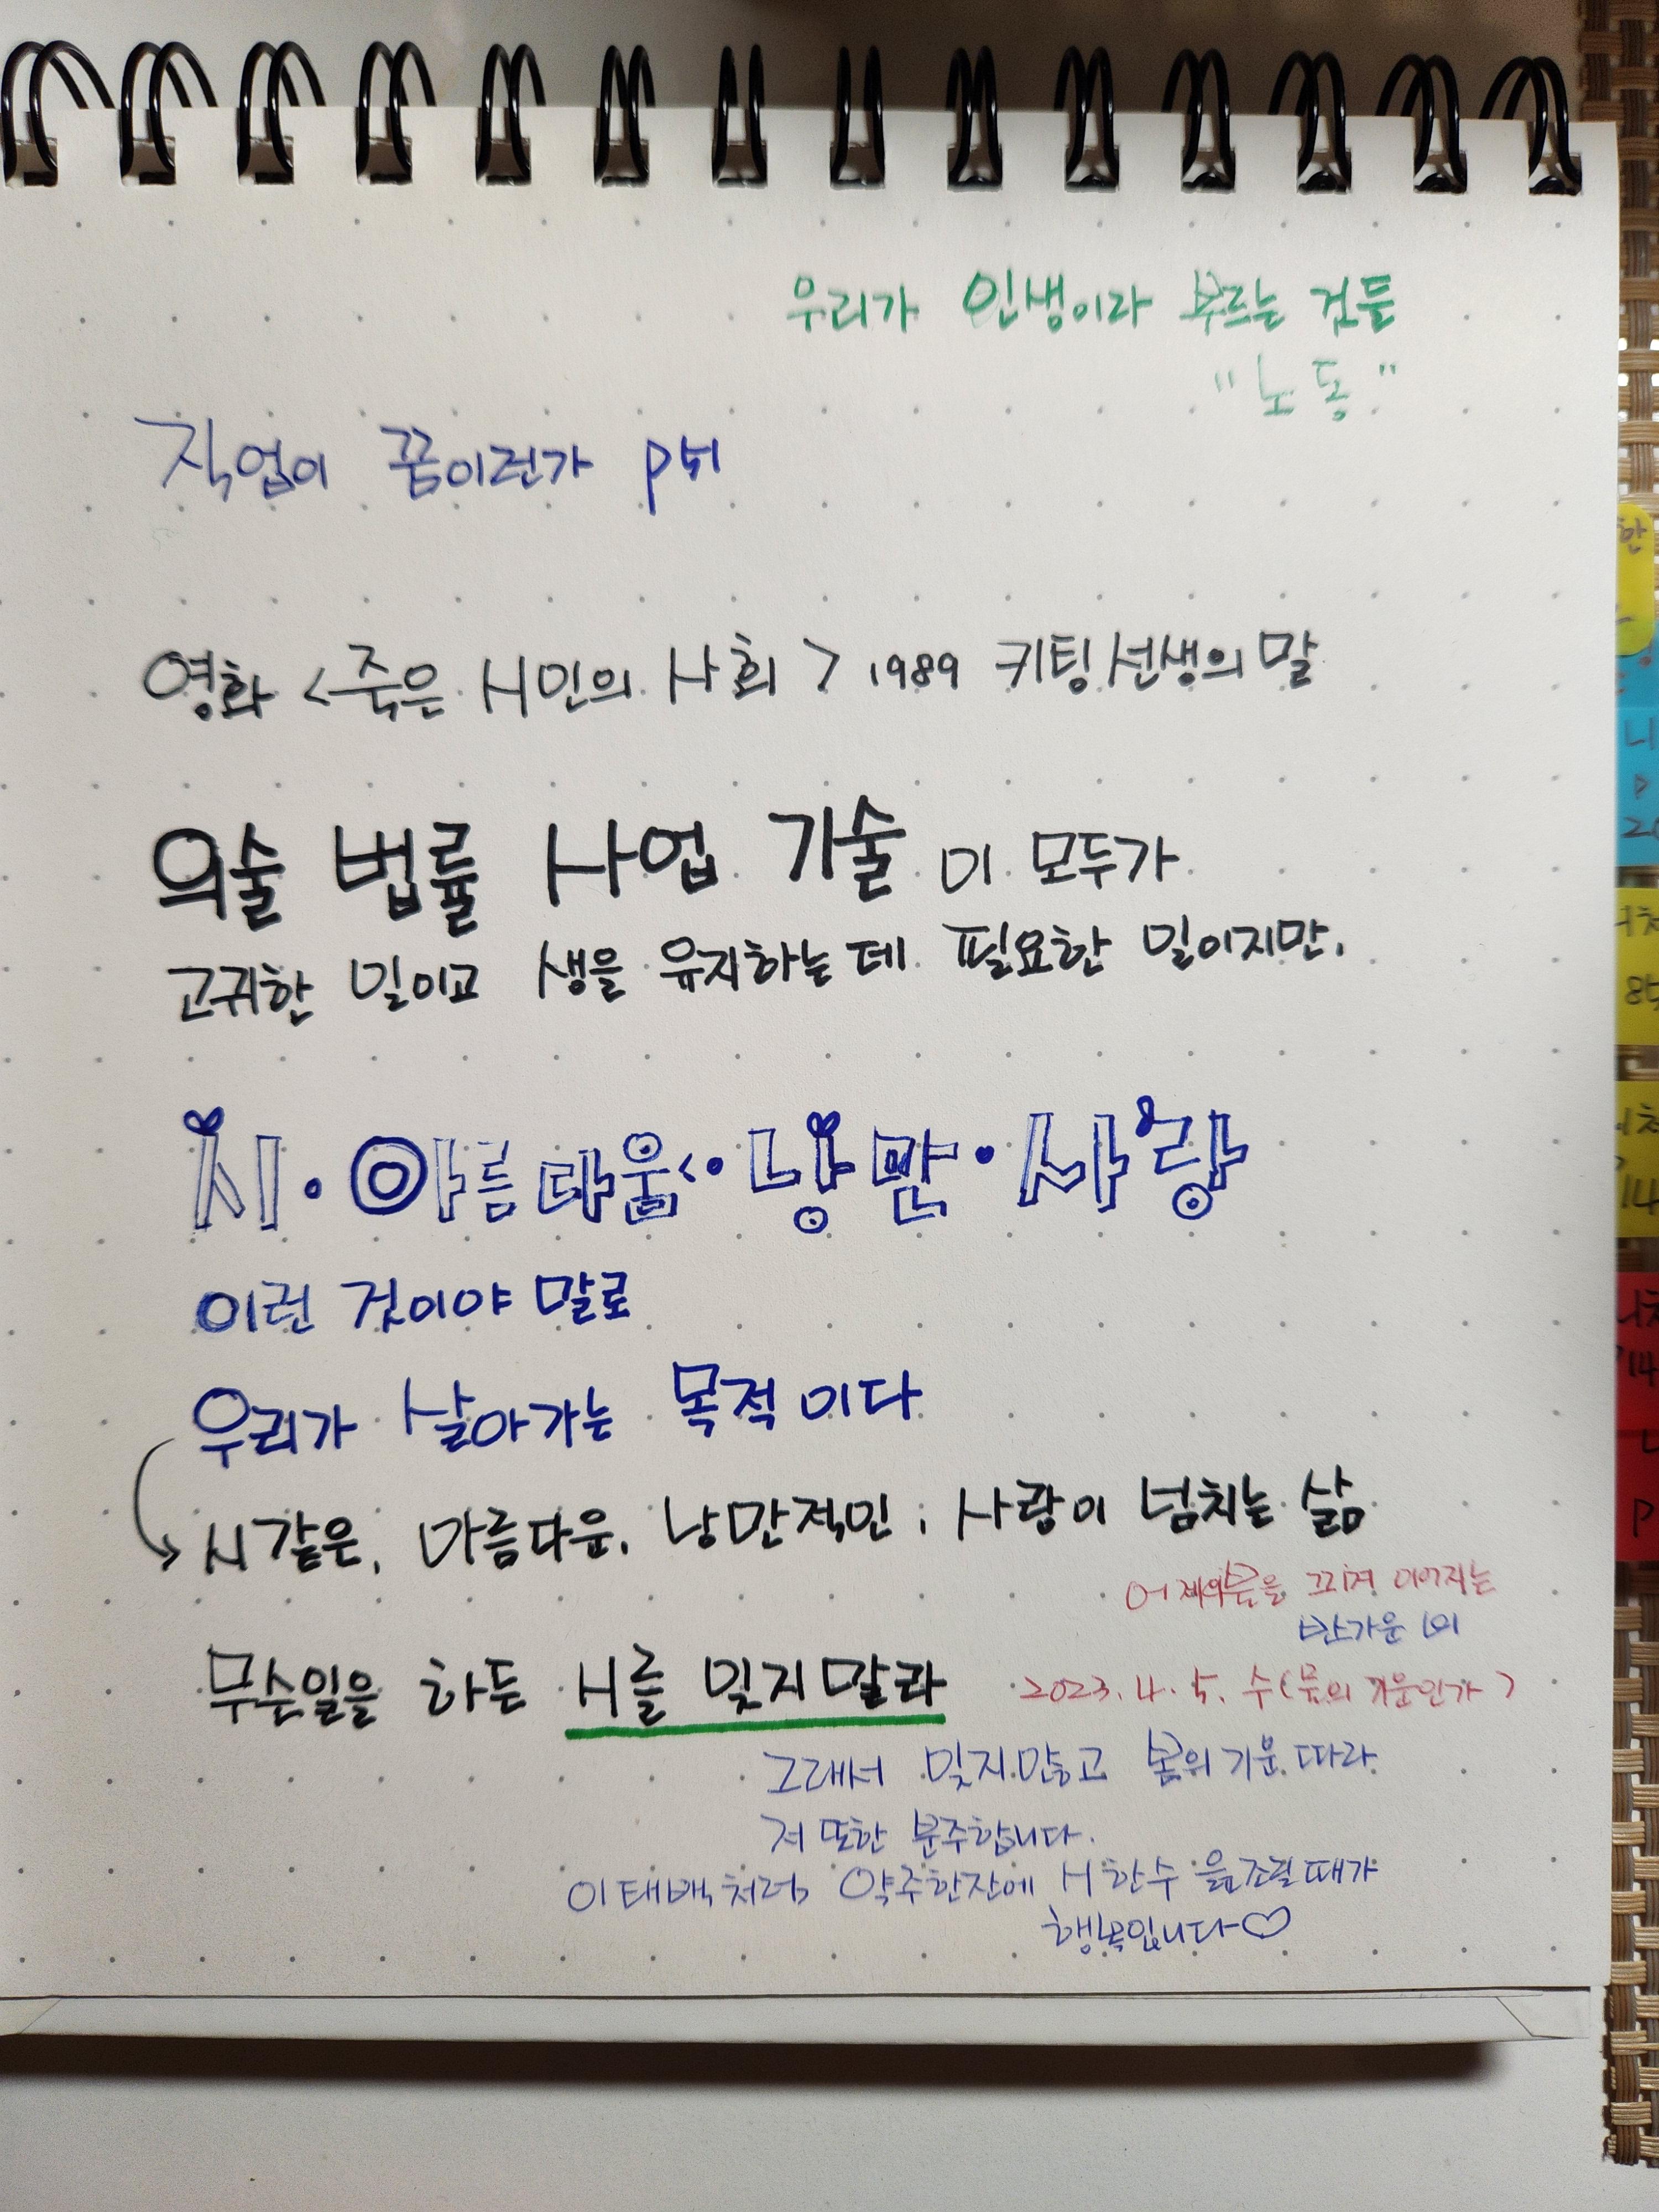 우리가 인생이라 부르는 것들
"노동"
직업이 꿈이런가 p51
영화 <죽은 시인의 사회> 1989 키팅선생의 말
의술 법률 사업 기술 이 모두가
고귀한 일이고 생을 유지하는데 필요한 일이지만.
시·아름다움·낭만·사랑
이런 것이야 말로
우리가 살아가는 목적이다
시같은, 아름다운, 낭만적인, 사랑이 넘치는 삶
어제의 봄을 이어지는
반가운 비
무슨일을 하든 시를 잊지말라
2023. 4. 5. 수 (봄의 기운인가)
그래서 잊지않고 봄의 기운 따라
저 또한 분주합니다.
이태백처럼 약주한잔에 시한수 읊조릴때가
행복입니다♡
한